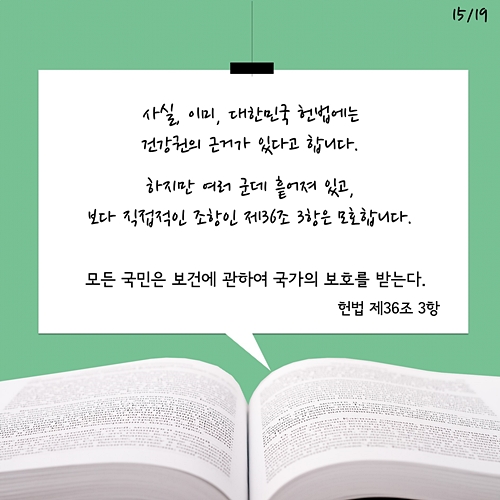 15/19
사실, 이미, 대한민국 헌법에는
건강권의 근거가 있다고 합니다.
하지만 여러 군데 흩어져 있고,
보다 직접적인 조항인 제36조 3항은 모호합니다.
모든 국민은 보건에 관하여 국가의 보호를 받는다.
헌법 제36조 3항